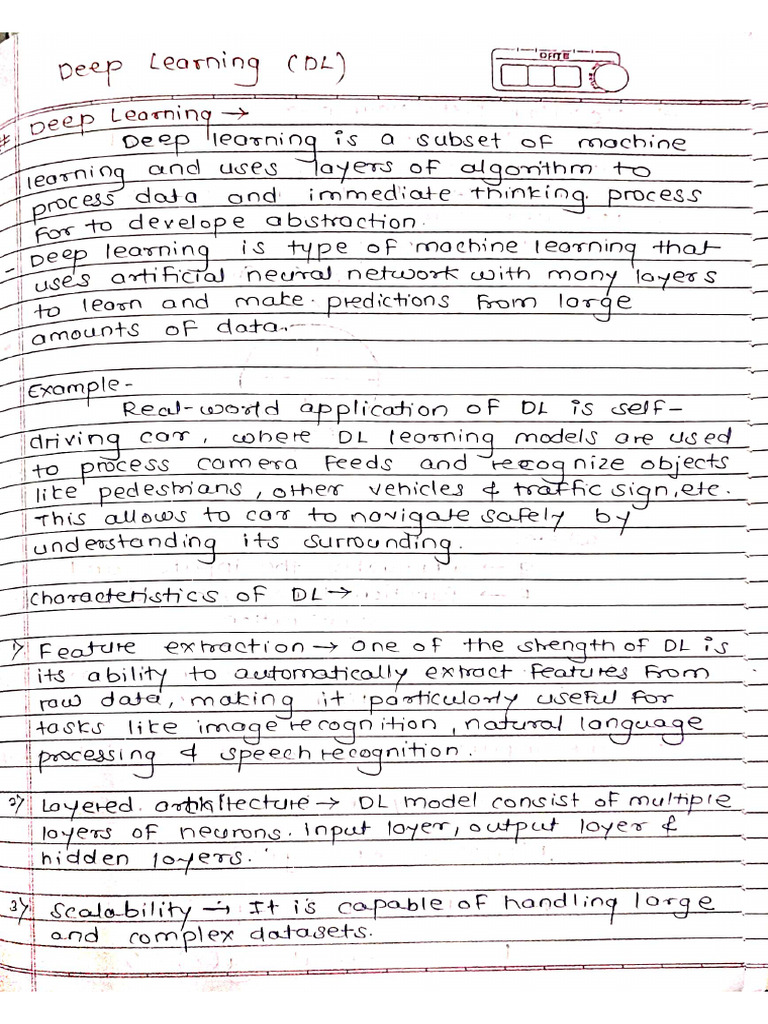 Deep Learning (DL)
DATE
# Deep Learning →
Deep learning is a subset of machine
learning and uses layers of algorithm to
process data and immediate thinking process
for to develope abstraction.
- Deep learning is type of machine learning that
uses artificial neural network with many layers
to learn and make predictions from large
amounts of data.
Example-
Real-world application of DL is self-
driving car, where DL learning models are used
to process camera feeds and recognize objects
like pedestrians, other vehicles & traffic sign, etc.
This allows to car to navigate safely by
understanding its surrounding.
Characteristics of DL →
1) Feature extraction → One of the strength of DL is
its ability to automatically extract features from
raw data, making it particularly useful for
tasks like image recognition, natural language
processing & speech recognition.
2) Layered architecture → DL model consist of multiple
layers of neurons. input layer, output layer &
hidden layers.
3) Scalability → It is capable of handling large
and complex datasets.